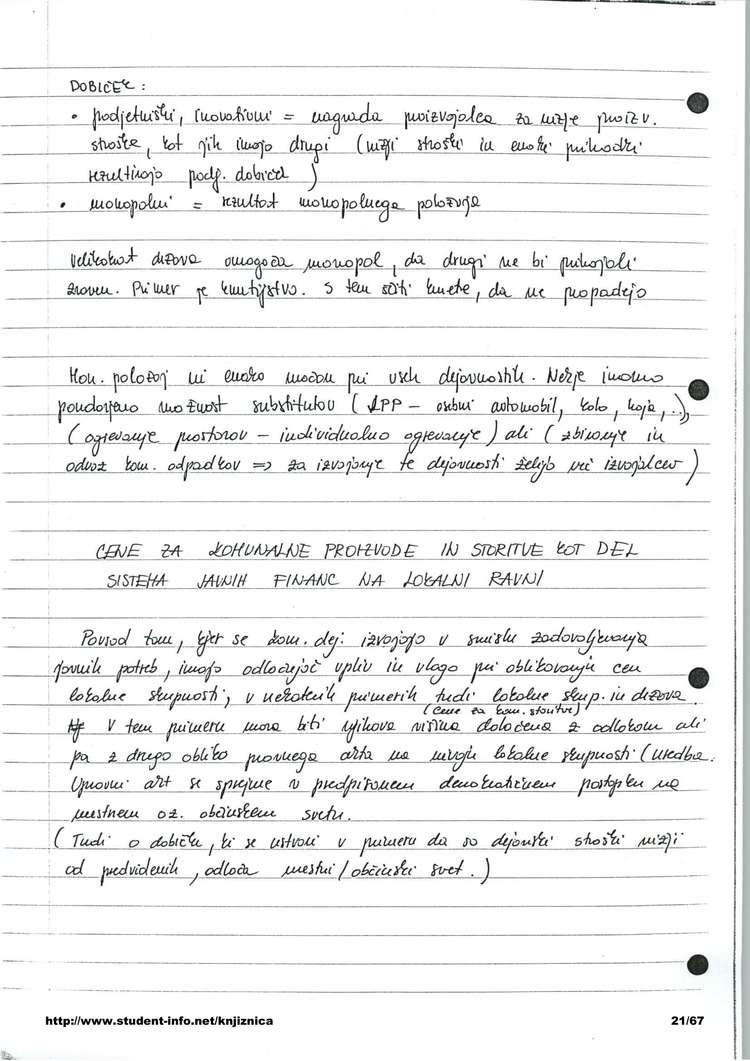 DOBIČEK :
• podjetniški, inovativni = nagrada proizvajalca za nižje proizv.
stroške, kot jih imajo drugi (nižji stroški in enaki prihodki
rezultirajo podj. dobiček)
• monopolni = rezultat monopolnega položaja
Velikokrat država omogoča monopol, da drugi ne bi prihajali
zraven. Primer je kmetijstvo. S tem ščiti kmete, da ne propadejo
Mon. položaj ni enako močan pri vseh dejavnostih. Nekje imamo
poudarjeno možnost substitutov (LPP – osebni avtomobil, kolo, hoja,..),
(ogrevanje prostorov – individualno ogrevanje) ali (zbiranje in
odvoz kom. odpadkov => za izvajanje te dejavnosti želijo več izvajalcev)
CENE ZA KOMUNALNE PROIZVODE IN STORITVE KOT DEL
SISTEMA JAVNIH FINANC NA LOKALNI RAVNI
Povsod tam, kjer se kom. dej. izvajajo v smislu zadovoljevanja
javnih potreb, imajo odločujoč vpliv in vlogo pri oblikovanju cen
lokalne skupnosti, v nekaterih primerih tudi lokalne skup. in država.
(cene za kom. storitve)
V tem primeru mora biti njihova višina določena z odlokom ali
pa z drugo obliko pravnega akta na nivoju lokalne skupnosti (Uredba.
Upravni akt se sprejme v predpisanem demokratičnem postopku na
mestnem oz. občinskem svetu.
(Tudi o dobičku, ki se ustvari v primeru da so dejanski stroški nižji
od predvidenih, odloča mestni/občinski svet.)
http://www.student-info.net/knjiznica
21/67